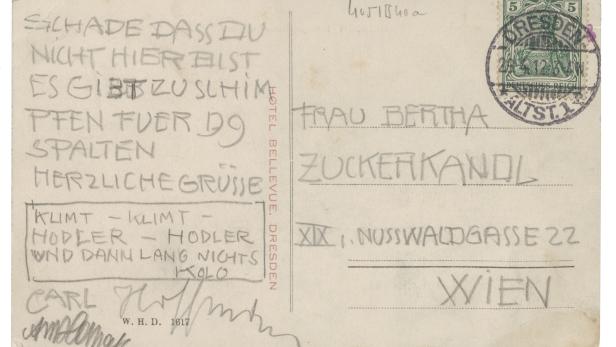 SCHADE DASS DU
NICHT HIER BIST
ES GIBT ZU SCHIM
PFEN FUER D9
SPALTEN
HERZLICHE GRÜSSE
KLIMT – KLIMT –
HODLER – HODLER
UND DANN LANG NICHTS
KOLO
CARL
W. H. D. 1617
HOTEL BELLEVUE, DRESDEN
5 5
DRESDEN
ALTST. 1
FRAU BERTHA
ZUCKERKANDL
XIX, NUSSWALDGASSE 22
WIEN